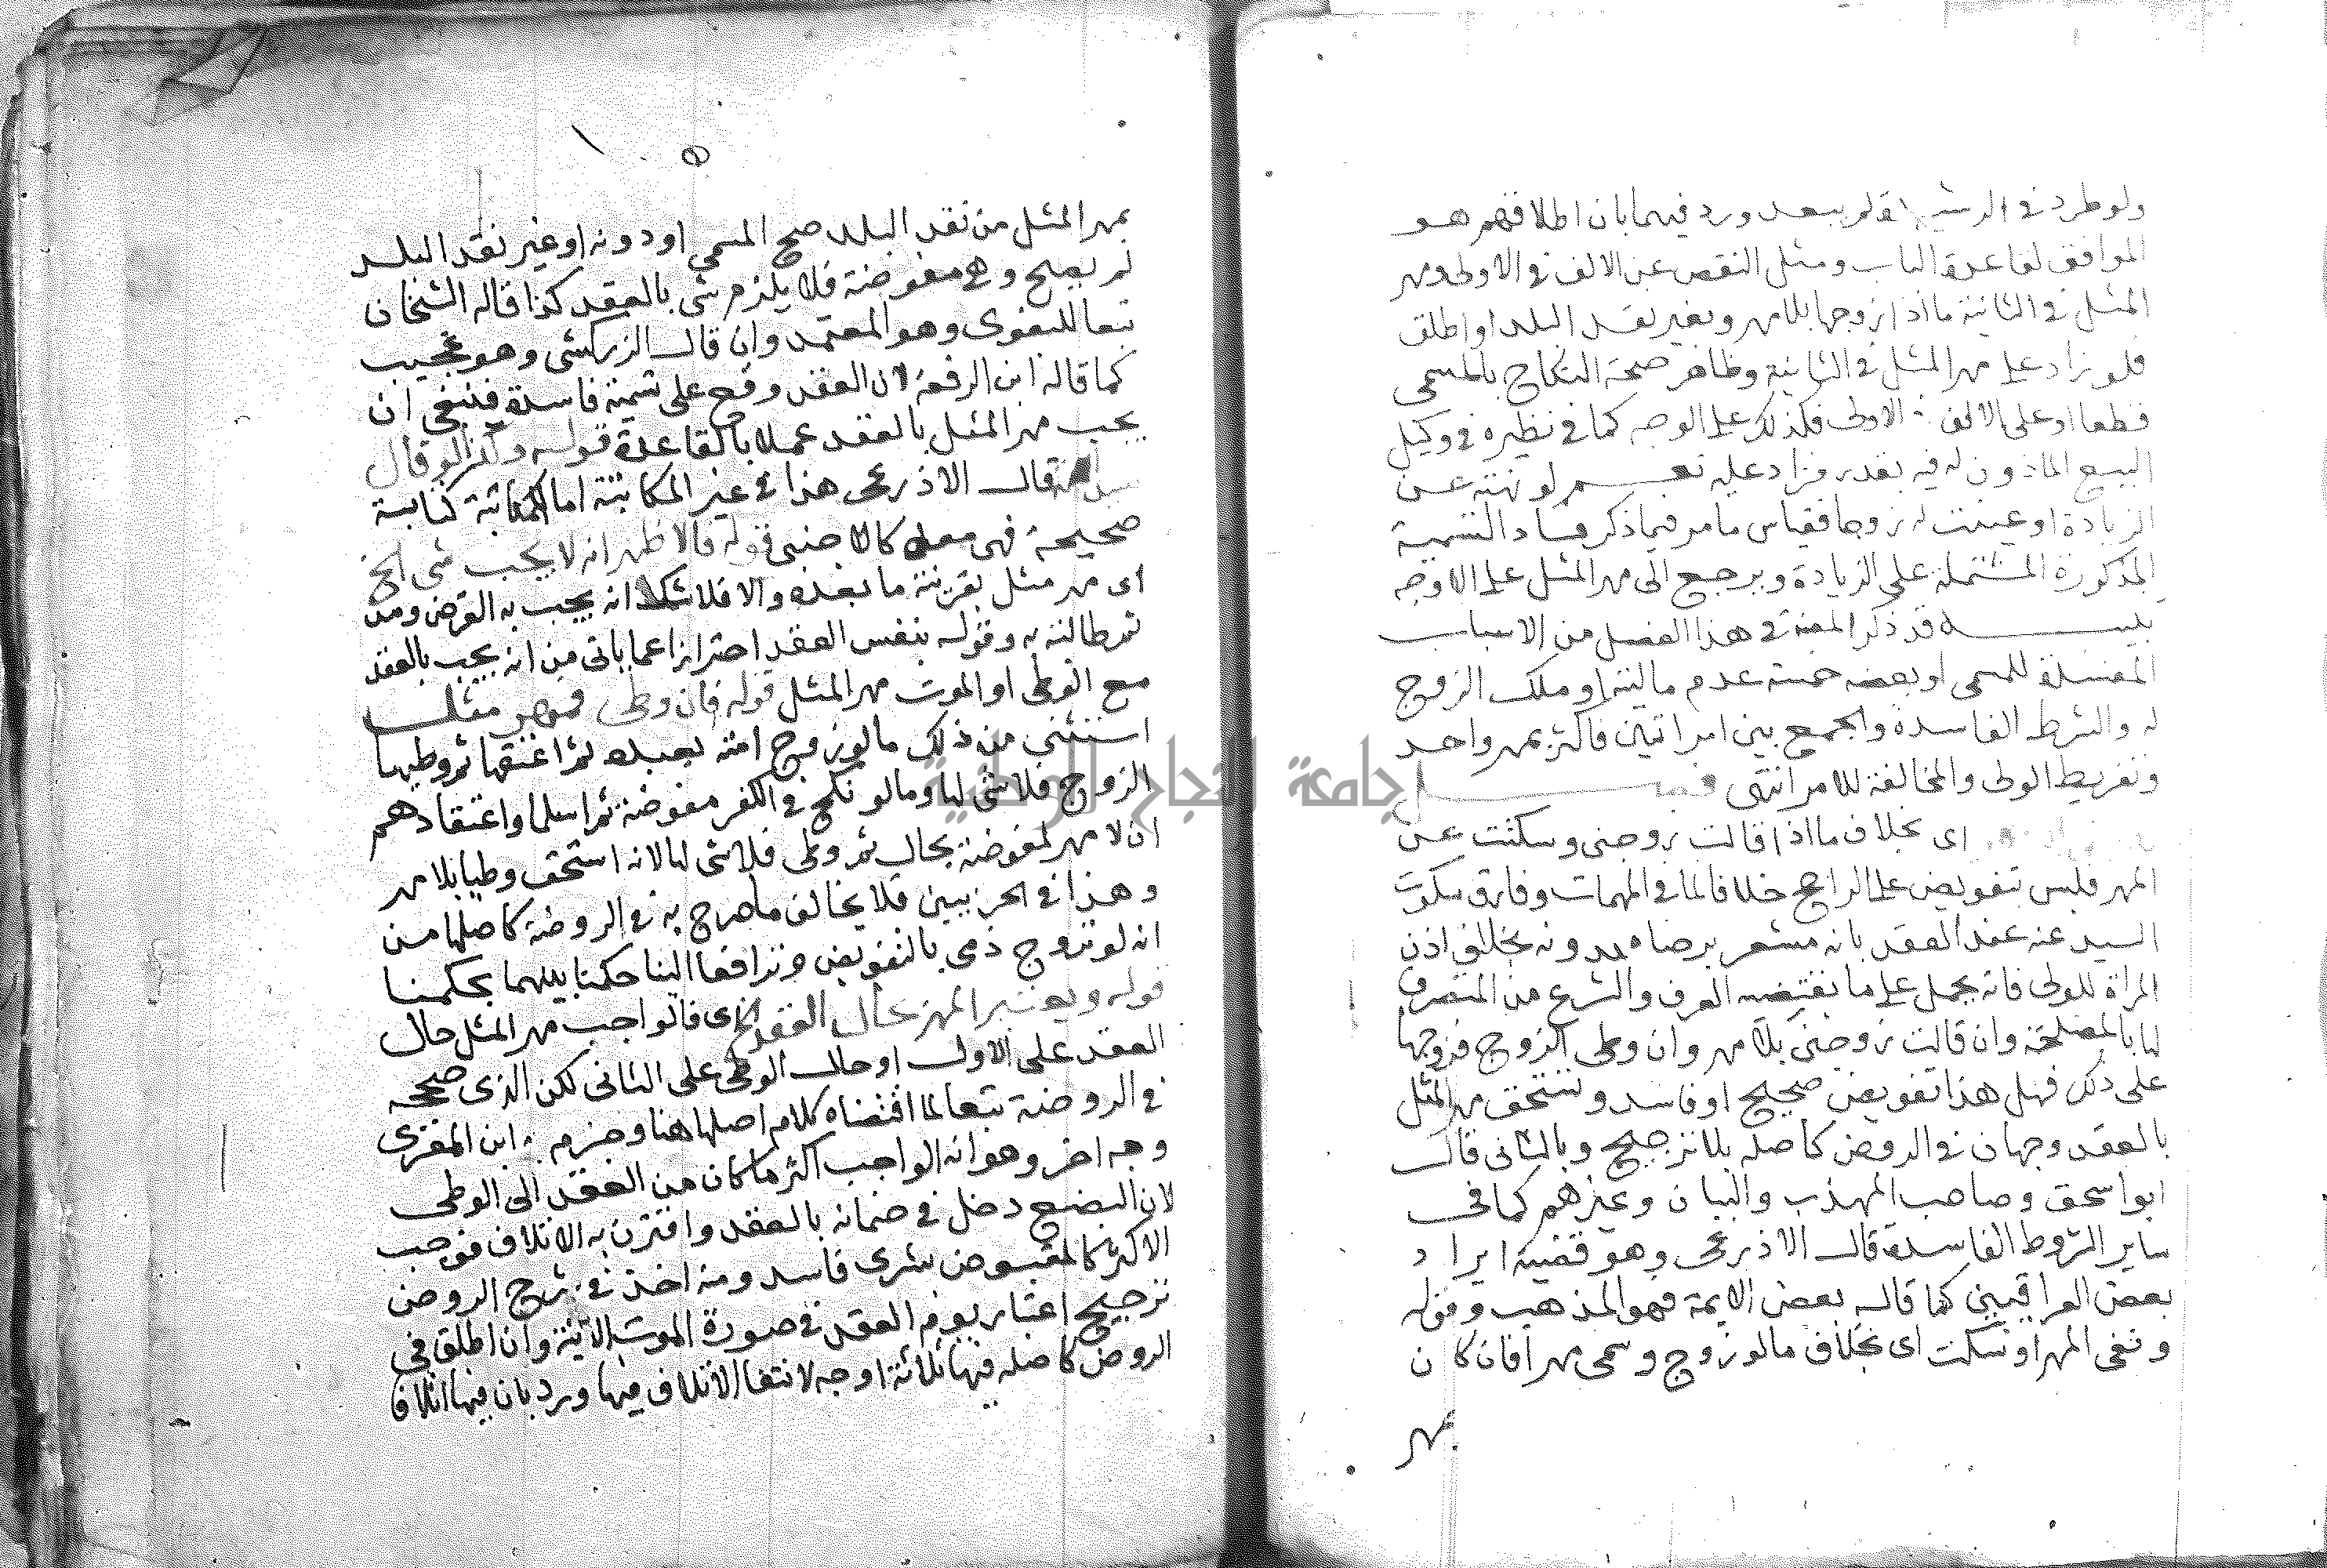 ولو طرد في الرشيدة لم يبعد ورد فيهما بان اطلاقهم هو
الموافق لقاعدة الباب ومثل النقص عن الالف في الاولى ومهر
المثل في الثانية ما اذا زوجها بلا مهر وبغير نقد البلد او اطلق
فلو زاد على مهر المثل في الثانية وظاهر صحة النكاح بالمسمى
قطعا او على الالف في الاولى فكذلك على الاوجه كما في نظيره في وكيل
البيع الماذون له فيه بقدر فزاد عليه نعم لو نهته عن
الزيادة او عينت له زوجا فقياس ما مر فيما ذكر فساد التسمية
المذكورة المشتملة على الزيادة ويرجع الى مهر المثل على الاوجه
تنبيه قد ذكر المصنف في هذا الفصل من الاسباب
المفسدة للمسمى او بعضه خمسة عدم ماليته او ملك الزوج
له والشرط الفاسدة والجمع بين امراتين فاكثر بمهر واحد
وتفريط الولى والمخالفة للامر انتهى فصل
اى بخلاف ما اذا قالت زوجنى وسكتت عن
المهر فليس تفويض على الراجح خلافا لما في المهمات وفارق سكوت
السيد عنه عند العقد بانه مشعر برضاه بدونه بخلاف اذن
المراة للولى فانه يحمل على ما يقتضيه العرف والشرع من التصرف
لها بالمصلحة وان قالت زوجنى بلا مهر وان وطى الزوج فزوجها
على ذلك فهل هذا تفويض صحيح او فاسد وتستحق مهر المثل
بالعقد وجهان في الروض كاصله بلا ترجيح وبالثانى قال
ابو اسحق وصاحب المهذب والبيان وغيرهم كما في
ساير الشروط الفاسدة قال الاذرعى وهو قضية ايراد
بعض العراقيين كما قاله بعض الايمة فهو المذهب وقوله
ونفى المهر او سكت اى بخلاف ما لو زوج وسمى مهرا فان كان
بمهر
بمهر المثل من نقد البلد صح المسمى او دونه او غير نقد البلد
لم يصح وهي مفوضة فلا يلزم شى بالعقد كذا قاله الشيخان
تبعا للبغوى وهو المعتمد وان قال الزركشى وهو عجيب
كما قاله ابن الرفعة لان العقد وقع على تسمية فاسدة فينبغى ان
يجب مهر المثل بالعقد عملا بالقاعدة قوله وكذا لو قال
سيد امة قال الاذرعى هذا في غير المكاتبة اما المكاتبة كتابة
صحيحة فهى معه كالاجنبى قوله فالاظهر انه لا يجب شى الخ
اى مهر مثل بقرينة ما بعده والا فلا شك انه يجب به الفرض ومن
ثم طالبته به وقوله بنفس العقد احترازا عما ياتى من انه يجب بالعقد
مع الوطى او الموت مهر المثل قوله فان وطى فمهر مثل
استثنى من ذلك ما لو زوج امته بعبده ثم اعتقها ثم وطيها
الزوج فلا شى لها وما لو نكح في الكفر مفوضة ثم اسلما واعتقادهم
ان لا مهر لمفوضة بحال ثم وطى فلا شى لها لانه استحق وطيا بلا مهر
وهذا في الحربيين فلا يخالف ما صرح به في الروضة كاصلها من
انه لو تزوج ذمى بالتفويض وترافعا الينا حكمنا بينهما بحكمنا
قوله ويعتبر المهر بحال العقد الخ اى فالواجب مهر المثل حال
العقد على الاول او حال الوطى على الثانى لكن الذى صححه
في الروضة تبعا لما اقتضاه كلام اصلها هنا وجزم به ابن المقرى
وجه اخر وهو انه الواجب اكثر ما كان من العقد الى الوطى
لان البضع دخل في ضمانه بالعقد واقترن به الاتلاف فوجب
الاكثر كالمقبوض بشرى فاسد ومنه اخذ في شرح الروض
ترجيح اعتبار يوم العقد في صورة الموت الاتية وان اطلق في
الروض كاصله فيها ثلاثة اوجه لانتفا الاتلاف فيها ورد بان فيها اتلافا